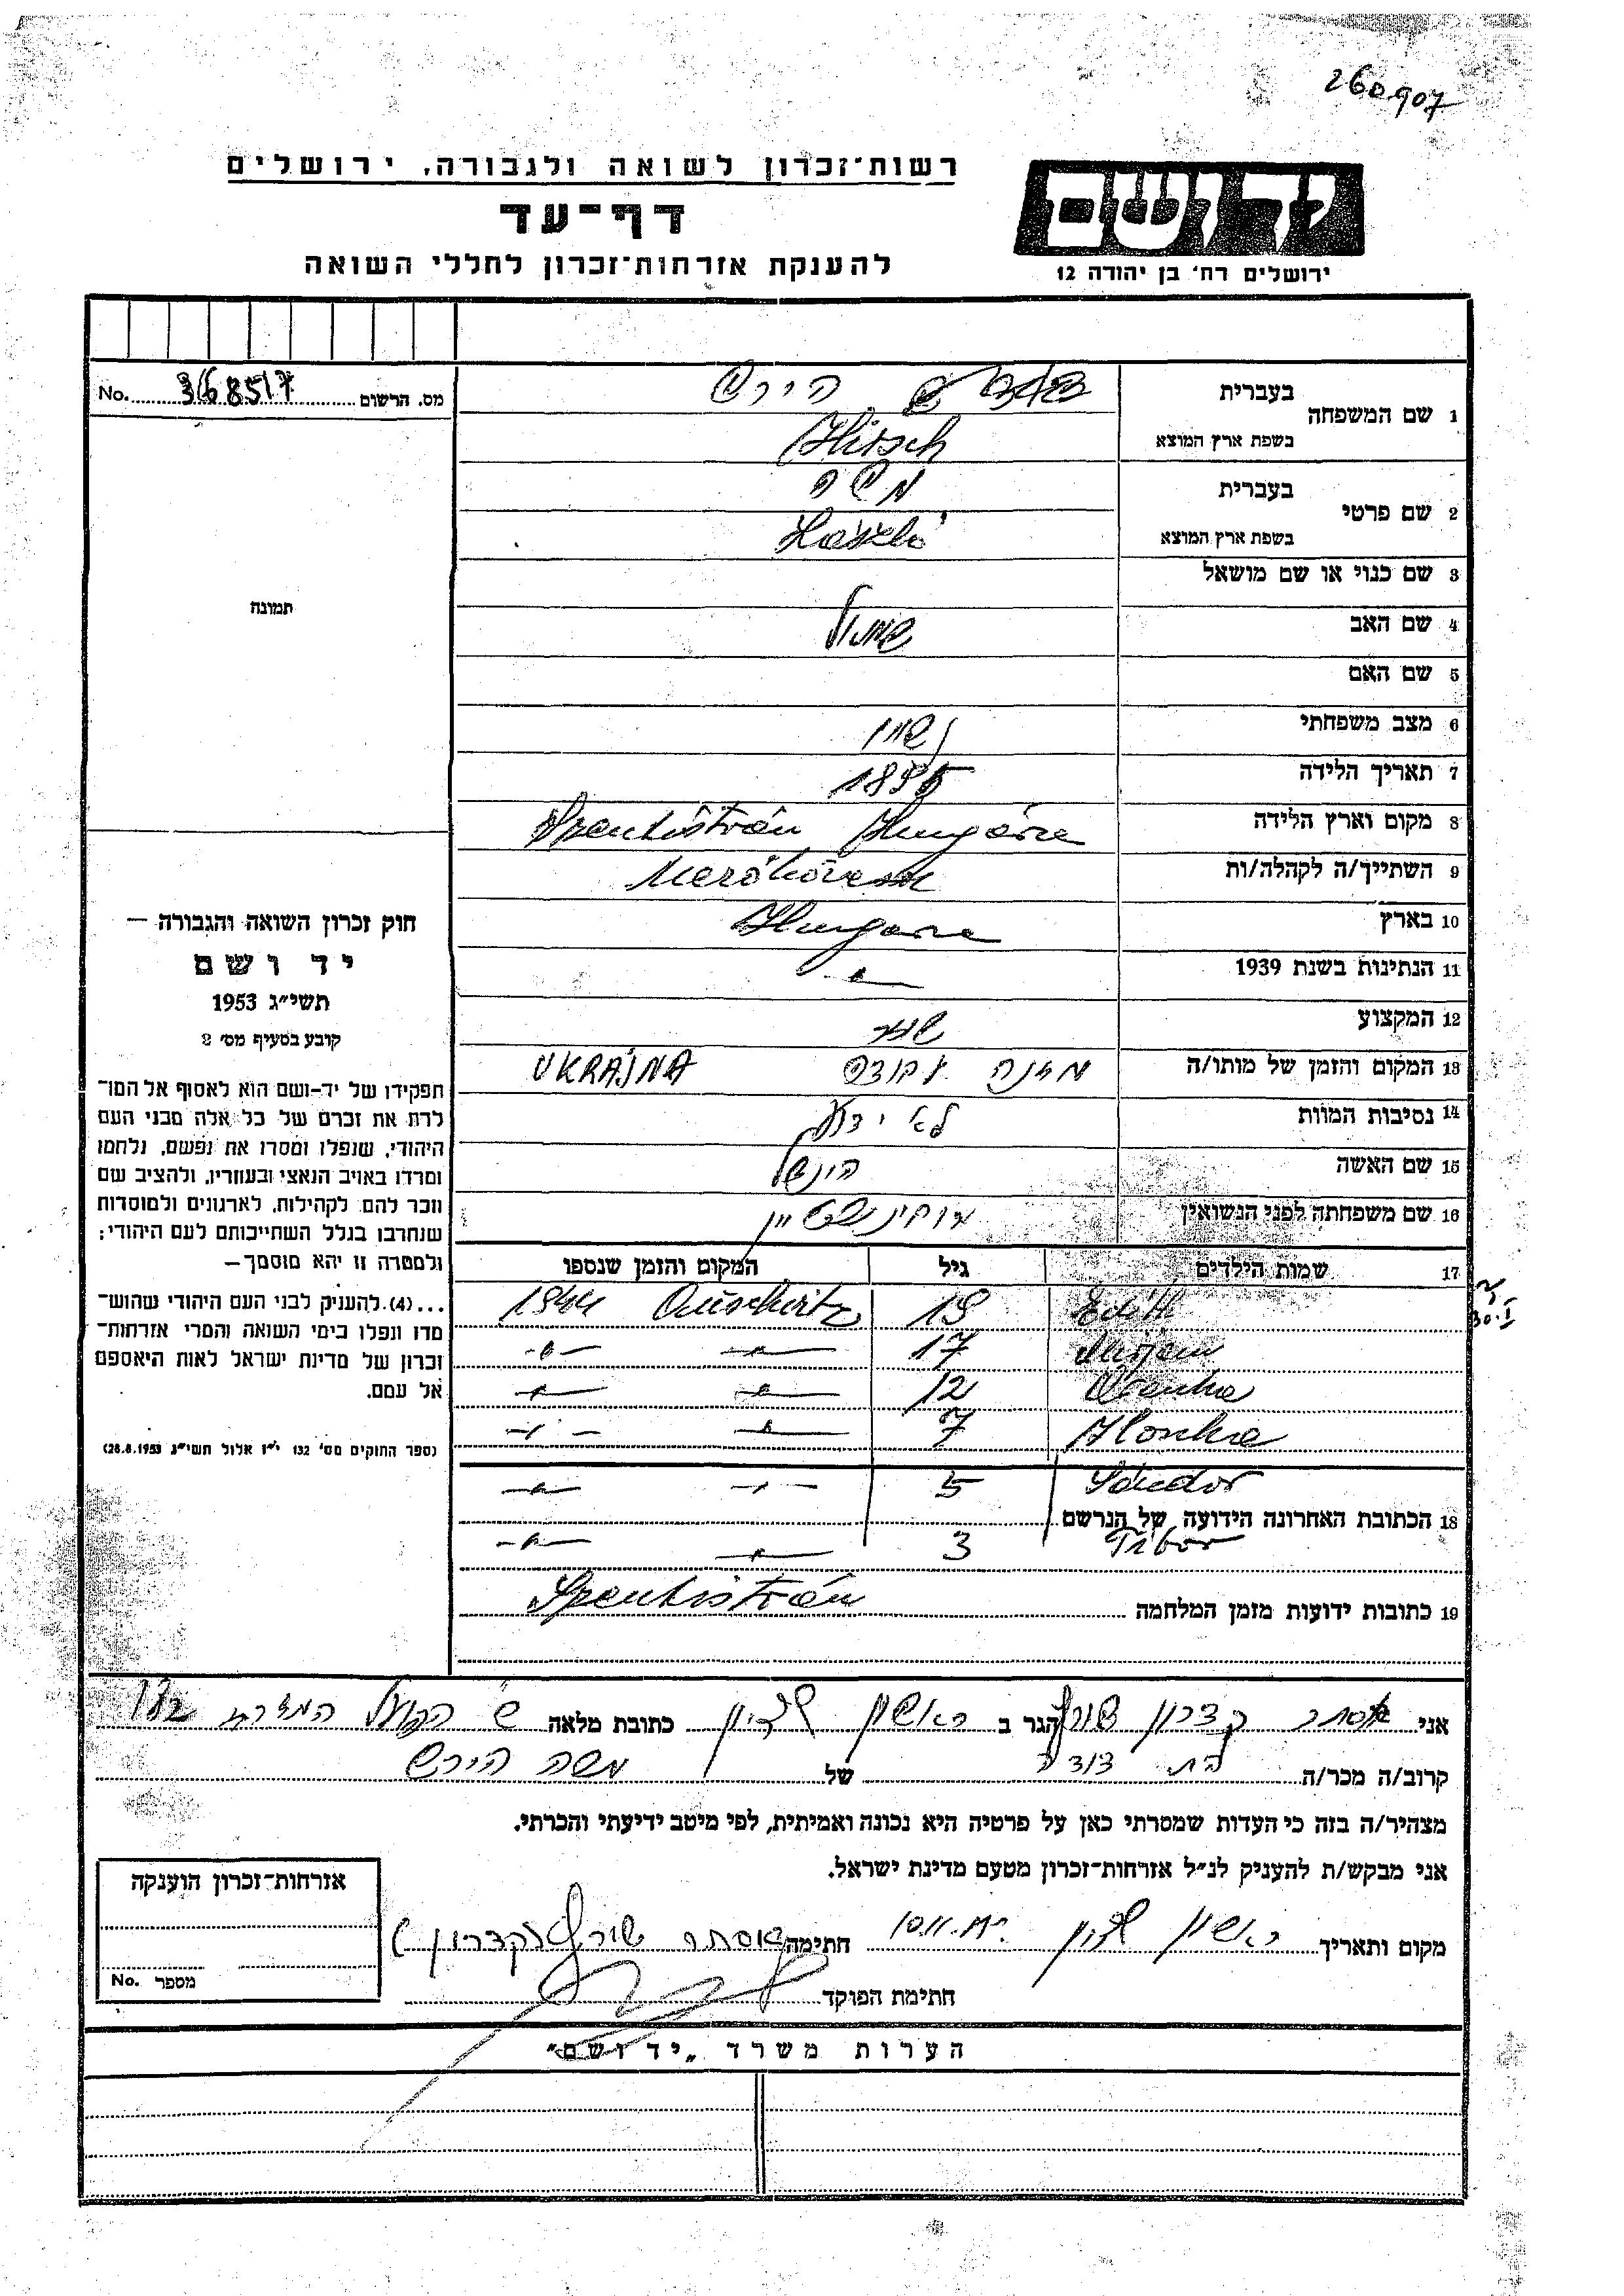 260907
רשות־זכרון לשואה ולגבורה, ירושלים
דף־עד
להענקת אזרחות־זכרון לחללי השואה
ידושם
ירושלים רח' בן יהודה 12
מס. הרשום 368517 No.
1 שם המשפחה בעברית הירש
בשפת ארץ המוצא Hirsch
2 שם פרטי בעברית משה
בשפת ארץ המוצא László
3 שם כנוי או שם מושאל
4 שם האב שמואל
5 שם האם
6 מצב משפחתי נשוי
7 תאריך הלידה
8 מקום וארץ הלידה Szentistván Hungária
9 השתייך/ה לקהלה/ות Mezőkövesd
10 בארץ Hungaria
11 הנתינות בשנת 1939 — " —
12 המקצוע
13 המקום והזמן של מותו/ה מחנה עבודה UKRAJNA
14 נסיבות המוות לא ידוע
15 שם האשה
16 שם משפחתה לפני הנשואין
17 שמות הילדים גיל המקום והזמן שנספו
Edith 19 Auschwitz 1944
Mirjam 17 — " — — " —
12 — " — — " —
Ilonka 7 — " — — " —
Sándor 5 — " — — " —
18 הכתובת האחרונה הידועה של הנרשם
Tibor 3 — " — — " —
19 כתובות ידועות מזמן המלחמה Szentistván
תמונה
חוק זכרון השואה והגבורה —
יד ושם
תשי"ג 1953
קובע בסעיף מס' 2
תפקידו של יד-ושם הוא לאסוף אל המו־
לדת את זכרם של כל אלה מבני העם
היהודי, שנפלו ומסרו את נפשם, נלחמו
ומרדו באויב הנאצי ובעוזריו, ולהציב שם
וזכר להם לקהילות, לארגונים ולמוסדות
שנחרבו בגלל השתייכותם לעם היהודי;
ולמטרה זו יהא מוסמך —
...(4) להענקת לבני העם היהודי שהוש־
מדו ונפלו בימי השואה והמרי אזרחות־
זכרון של מדינת ישראל לאות היאספם
אל עמם.
(ספר החוקים מס' 132 י"ז אלול תשי"ג 28.8.1953)
אני אסתר קדרון שורץ הגר ב ראשון לציון כתובת מלאה ש' הפועל המזרחי
קרוב/ה מכר/ה בת דודה של משה הירש
מצהיר/ה בזה כי העדות שמסרתי כאן על פרטיה היא נכונה ואמיתית, לפי מיטב ידיעתי והכרתי.
אני מבקש/ת להעניק לנ"ל אזרחות־זכרון מטעם מדינת ישראל.
מקום ותאריך ראשון לציון חתימה אסתר שורץ (קדרון)
חתימת הפוקד
אזרחות־זכרון הוענקה
מספר No.
הערות משרד „יד ושם"